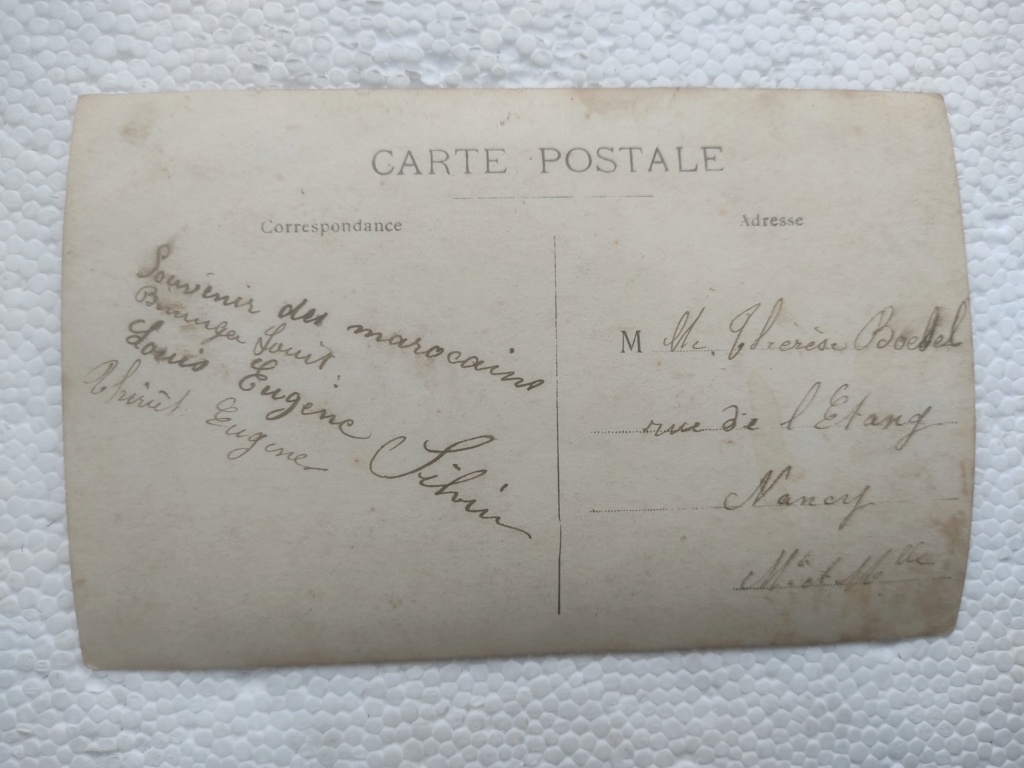 CARTE POSTALE
Correspondance
Souvenir des marocains
Louis
Louis Eugène
Thirût Eugene
Silvin
Adresse
M Mlle Thérèse Boebel
rue de l'Etang
Nancy
M et M